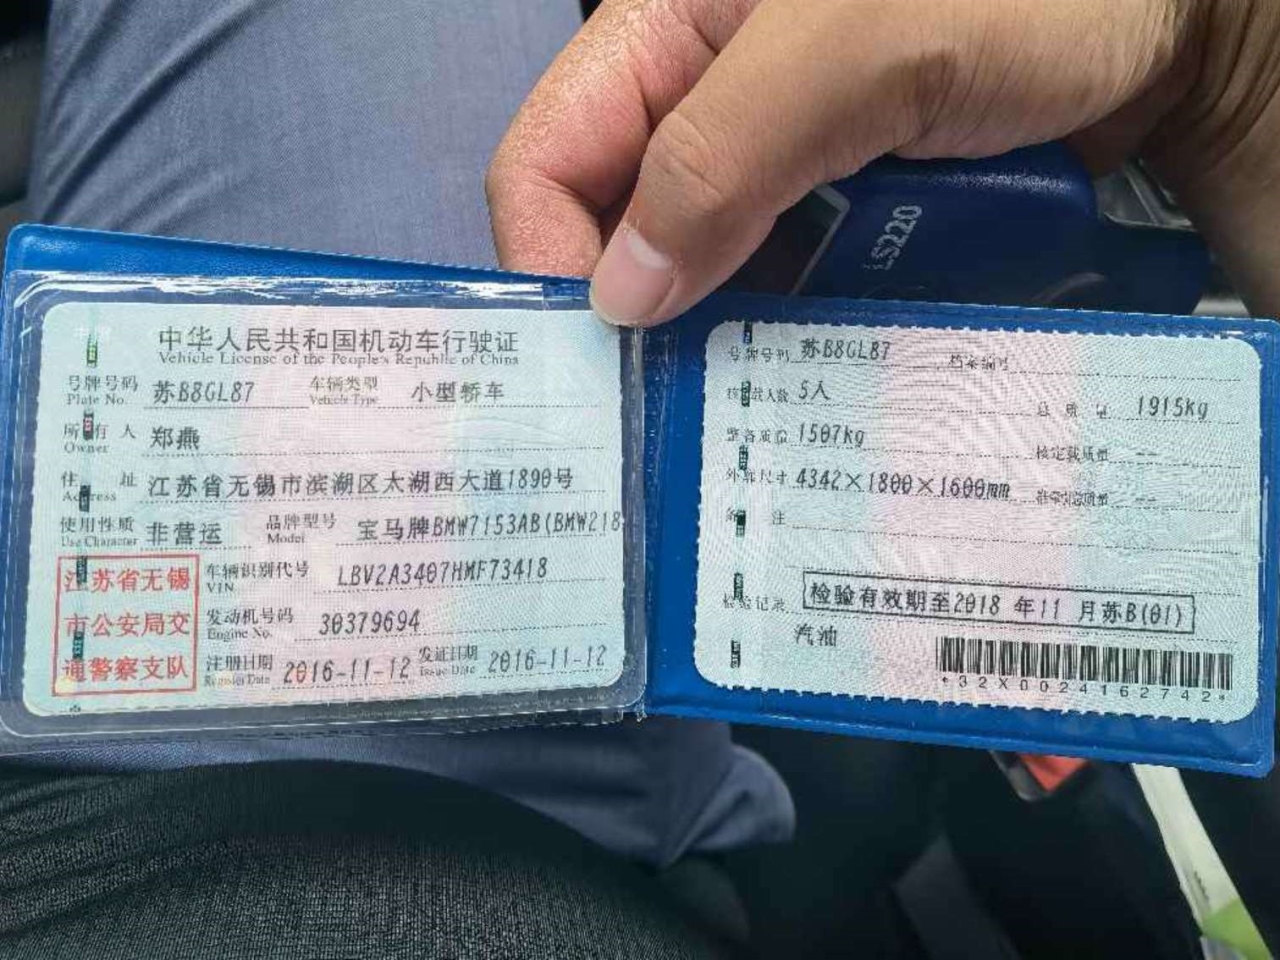 中华人民共和国机动车行驶证
Vehicle License of the People's Republic of China
号牌号码 苏B8GL87 车辆类型 小型轿车
Plate No. Vehicle Type
所有人 郑燕
Owner
住址 江苏省无锡市滨湖区太湖西大道1890号
Address
使用性质 非营运 品牌型号 宝马牌BMW7153AB(BMW218
Use Character Model
江苏省无锡
市公安局交
通警察支队
车辆识别代号 LBV2A3407HMF73418
VIN
发动机号码 30379694
Engine No.
注册日期 2016-11-12 发证日期 2016-11-12
Register Date Issue Date
号牌号码 苏B8GL87 档案编号
核定载人数 5人 总质量 1915kg
整备质量 1507kg 核定载质量 --
外廓尺寸 4342×1800×1600mm 准牵引总质量 --
备注
检验记录 检验有效期至2018年11月苏B(01)
汽油
*32X0024162742*
LS220